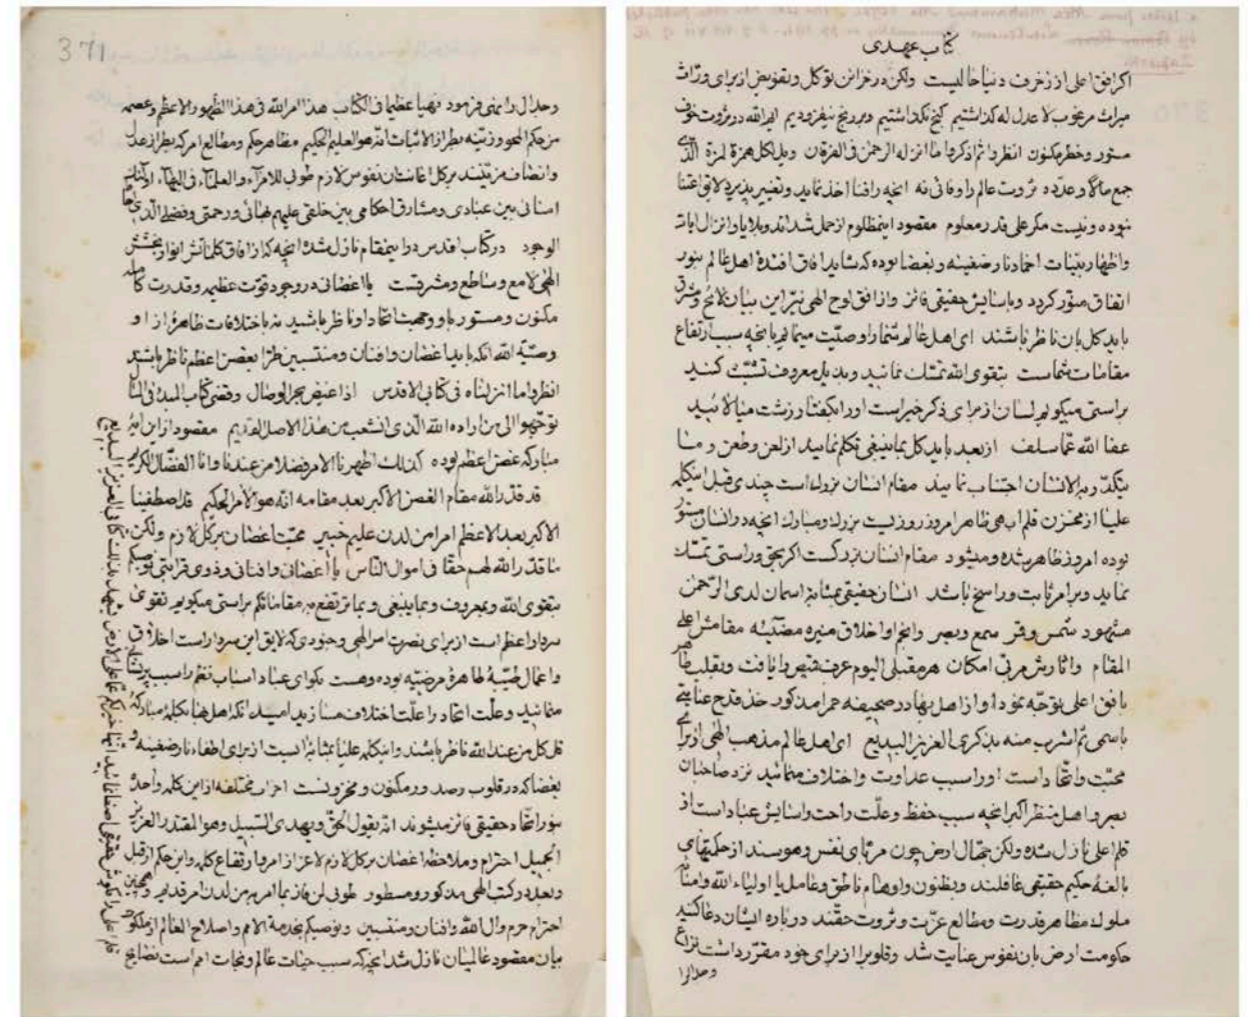 کتاب عهدی
اکر افق اعلی از زخرف دنیا خالیست ولکن در خزائن توکل وتفویض از برای ورّاث
میراث مرغوب لا عدل له کذاشتیم کنج نکذاشتیم وبر رنج نیفزودیم ایم الله در ثروت خوف
مستور وخطر مکنون انظروا ثم اذکروا ما انزله الرحمن فی الفرقان ویل لکل همزة لمزة الّذی
جمع مالا وعدّده ثروت عالم را وفائی نه انچه را فنا اخذ نماید وتغییر پذیرد لایق اعتنا
نبوده ونیست مکر علی قدر معلوم مقصود اینمظلوم از حمل شداید وبلایا وانزال ایات
واظهار بیّنات اخماد نار ضغینه وبغضا بوده که شاید افاق افئدهٔ اهل عالم بنور
اتفاق منوّر کردد وباسایش حقیقی فائز واز افق لوح الهی نیّر این بیان لائح ومشرق
باید کل بان ناظر باشند ای اهل عالم شما را وصیّت مینمایم بانچه سبب ارتفاع
مقامات شماست بتقوی الله تمسّک نمائید وبذیل معروف تشبّث کنید
براستی میکویم لسان از برای ذکر خیر است او را بکفتار زشت میالائید
عفا الله عمّا سلف از بعد باید کل بما ینبغی تکلم نمایید از لعن وطعن و ما
یتکدّر به الانسان اجتناب نمایید مقام انسان بزرکست چندی قبل اینکلمه
علیا از مخزن قلم ابهی ظاهر امروز روزیست بزرک ومبارک انچه در انسان مستور
بوده امروز ظاهر شده ومیشود مقام انسان بزرکست اکر بحق وراستی تمسّک
نماید وبر امر ثابت وراسخ باشد انسان حقیقی بمثابه اسمان لدی الرّحمن
مشهود شمس وقمر سمع وبصر وانجم او اخلاق منیره مضیئه مقامش اعلی
المقام واثارش مربّی امکان هر مقبلی الیوم عرف قمیص را یافت وبقلب طاهر
بافق اعلی توجّه نمود او از اهل بها در صحیفه حمرا مذکور خذ قدح عنایتی
باسمی ثم اشرب منه بذکری العزیز البدیع ای اهل عالم مذهب الهی از برای
محبّت واتّحاد است او را سبب عداوت واختلاف منمائید نزد صاحبان
بصر واهل منظر اکبر انچه سبب حفظ وعلّت راحت واسایش عباد است از
قلم اعلی نازل شده ولکن جهّال ارض چون مربّای نفس وهوسند از حکمتهای
بالغهٔ حکیم حقیقی غافلند وبظنون واوهام ناطق وعامل یا اولیاء الله وامنائه
ملوک مظاهر قدرت ومطالع عزّت وثروت حقّند در باره ایشان دعا کنید
حکومت ارض بان نفوس عنایت شد وقلوب را از برای خود مقرّر داشت نزاع
وجدال را
371
وجدال را نهی فرمود نهیا عظیما فی الکتاب هذا امر الله فی هذا الظهور الاعظم وعصمه
من حکم المحو وزیّنه بطراز الاثبات انّه هو العلیم الحکیم مظاهر حکم ومطالع امر که بطراز عدل
وانصاف مزیّنند بر کل اعانت ان نفوس لازم طوبی للامرآء والعلمآء فی البهآء اولئک
امنائی بین عبادی ومشارق احکامی بین خلقی علیهم بهائی ورحمتی وفضلی الّذی احاط
الوجود در کتاب اقدس در اینمقام نازل شده انچه که از افاق کلماتش انوار بخشش
الهی لامع وساطع ومشرقست یا اغصانی در وجود قوّت عظیمه وقدرت کامله
مکنون ومستور باو وجهت اتحاد او ناظر باشید نه باختلافات ظاهرهٔ از او
وصیّة الله انکه باید اغصان وافنان ومنتسبین طرّا بغصن اعظم ناظر باشند
انظروا ما انزلناه فی کتابی الاقدس اذا غیض بحر الوصال وقضی کتاب المبدء فی المآل
توجّهوا الی من اراده الله الّذی انشعب من هذا الاصل القدیم مقصود از این ایه
مبارکه غصن اعظم بوده کذلک اظهرنا الامر فضلا من عندنا وانا الفضّال الکریم
قد قدّر الله مقام الغصن الاکبر بعد مقامه انّه هو الآمر الحکیم قد اصطفینا
الاکبر بعد الاعظم امرا من لدن علیم خبیر محبّت اغصان بر کل لازم ولکن
ما قدّر الله لهم حقّا فی اموال النّاس یا اغصانی وافنانی وذوی قرابتی نوصیکم
بتقوی الله وبمعروف وبما ینبغی وبما ترتفع به مقاماتکم براستی میکویم تقوی
سردار اعظم است از برای نصرت امر الهی وجنودی که لایق این سردار است اخلاق
واعمال طیّبهٔ طاهرهٔ مرضیّه بوده وهست بکو ای عباد اسباب نظم را سبب پریشانی
منمائید وعلّت اتحاد را علّت اختلاف مسازید امید انکه اهل بها بکلمهٔ مبارکهٔ
قل کل من عند الله ناظر باشند واینکلمه علیا بمثابه ابست از برای اطفاء نار ضغینه و
بغضا که در قلوب وصدور مکنون ومخزونست احزاب مختلفه از این کلمه واحدهٔ
بنور اتحاد حقیقی فائز میشوند انّه یقول الحقّ ویهدی السّبیل وهو المقتدر العزیز
الجمیل احترام وملاحظهٔ اغصان بر کل لازم لاعزاز امر وارتفاع کلمه واین حکم از قبل
وبعد در کتب الهی مذکور ومسطور طوبی لمن فاز بما امر به من لدن امر قدیم وهمچنین
احترام حرم وال الله وافنان ومنتسبین ونوصیکم بخدمة الامم واصلاح العالم از ملکوت
بیان مقصود عالمیان نازل شد انچه که سبب حیات عالم ونجات امم است نصایح
قلم اعلی را بکوش حقیقی اصغا نمائید انّها خیر لکم عمّا علی الارض یشهد بذلک کتابی العزیز البدیع